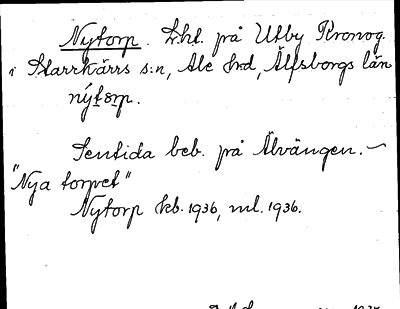 Nytorp. Lht. på Utby Kronog.
i Starrkärrs s:n, Ale hrd, Älfsborgs län
nýtorp.
Sentida beb. på Älvängen. ~
"Nya torpet"
Nytorp kb. 1936, ml. 1936.